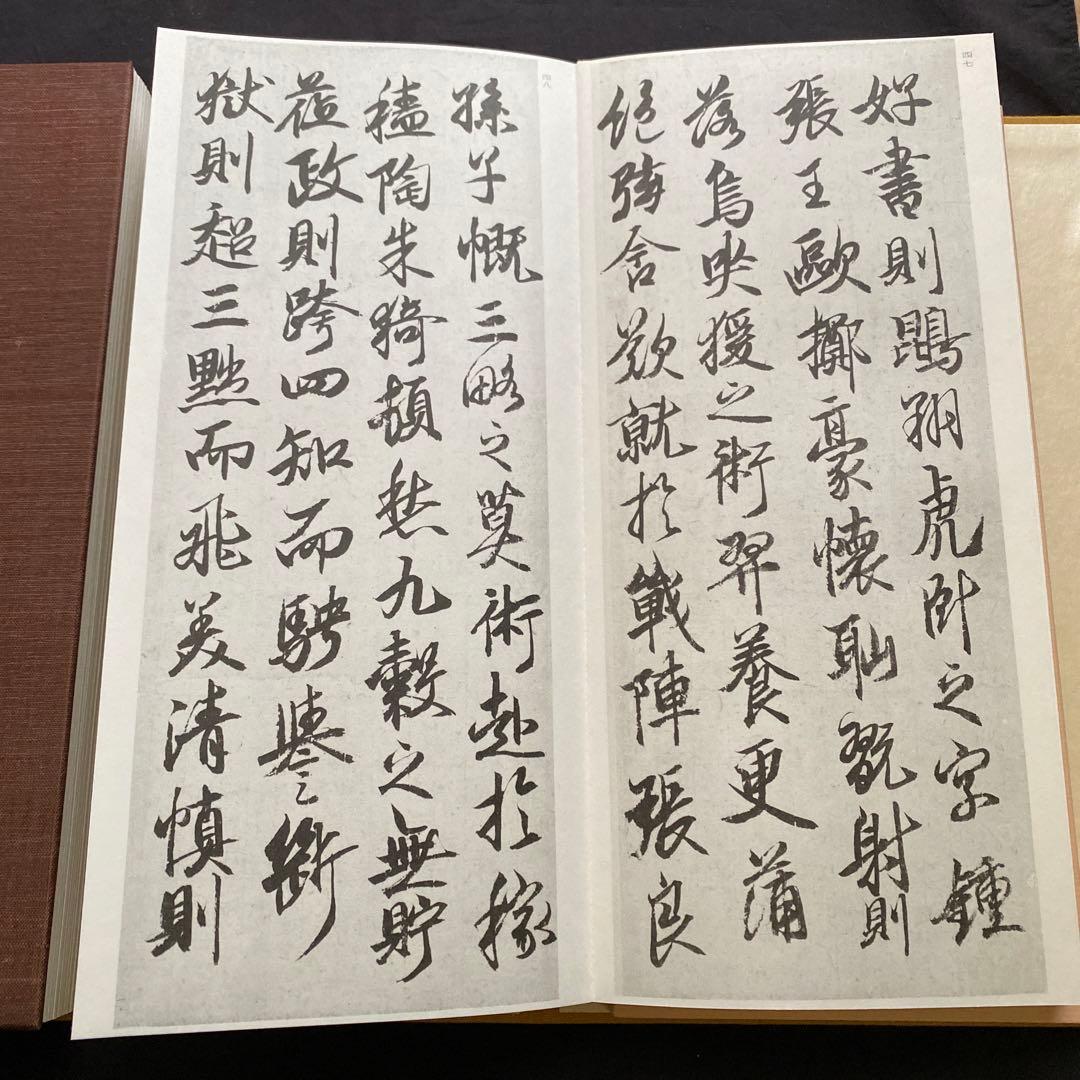 四七
好書則鵾翔虎臥之字鍾
張王歐擲豪懷耻翫射則
落烏哭猨之術羿養更蒲
絕弦含歎就於戰陣張良
四八
孫子慨三略之莫術赴於稼
穡陶朱猗頓愁九穀之無貯
莅政則跨四知而騁譽断
獄則超三黜而飛美清慎則